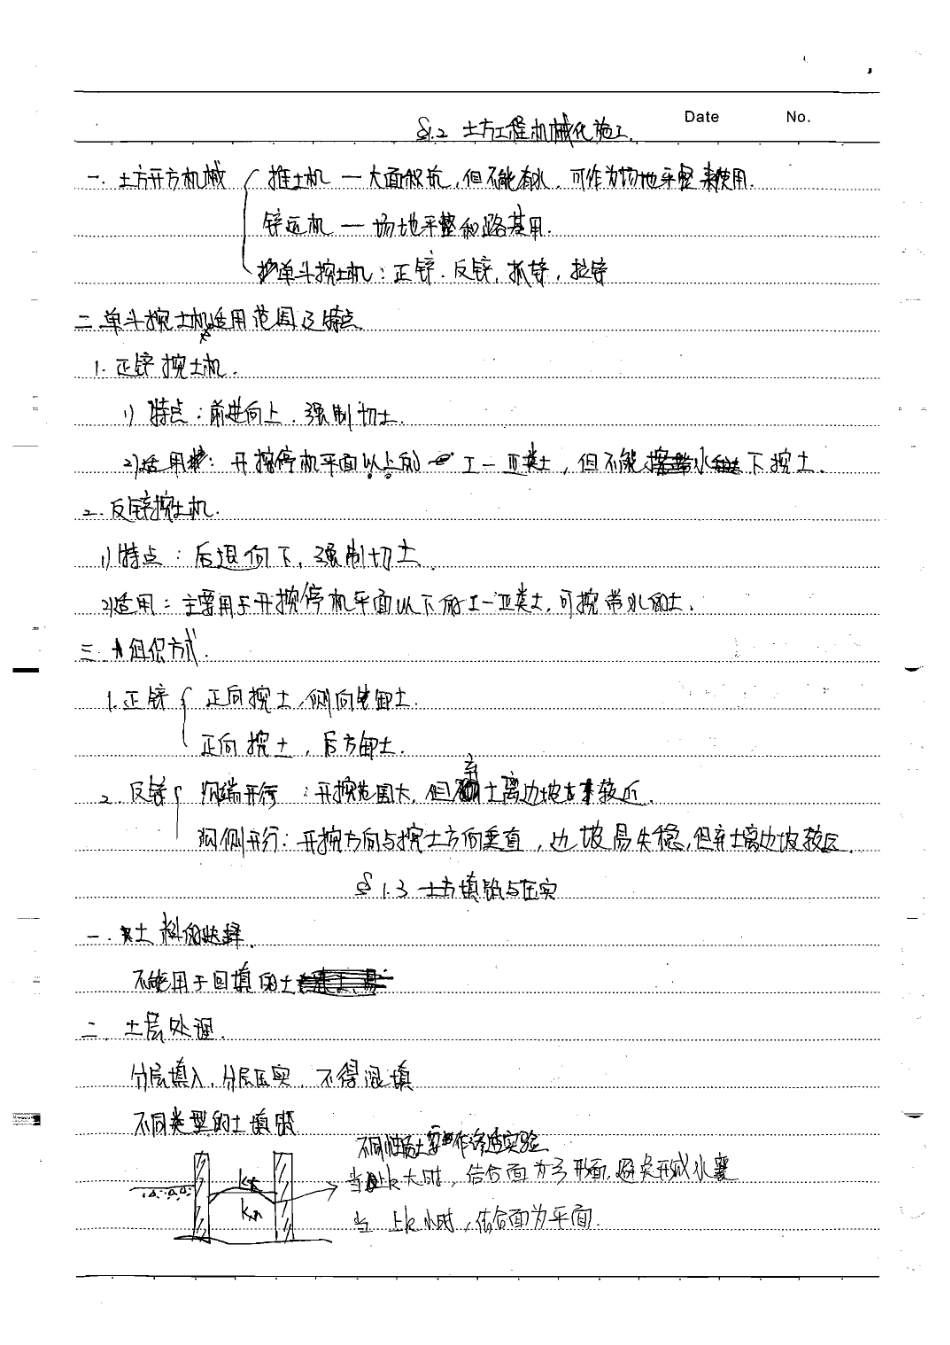 Date No.
§1.2 土方工程机械化施工.
一. 土方开方机械 推土机 — 大面积坑, 但不能有水. 可作为场地平整来使用.
铲运机 — 场地平整和路基用.
单斗挖土机: 正铲. 反铲, 抓铲, 拉铲
二. 单斗挖土机适用范围及特点
1. 正铲挖土机.
1) 特点: 前进向上. 强制切土.
2) 适用: 开挖停机平面以上的 I-Ⅲ类土, 但不能 水 下挖土.
2. 反铲挖土机.
1) 特点: 后退向下, 强制切土
2) 适用: 主要用于开挖停机平面以下的I-Ⅲ类土, 可挖带水的土.
三. 组织方式.
1. 正铲 正向挖土, 侧向卸土.
正向挖土, 后方卸土.
2. 反铲 沟端开行: 开挖范围大, 但弃土离边坡较近.
沟侧开行: 开挖方向与挖土方向垂直, 边坡易失稳, 但弃土离边坡较远.
§1.3 土方填筑与压实
一. 土料的选择.
不能用于回填的土
二. 土层处理.
分层填入, 分层压实. 不得混填
不同类型的土填筑
不同性质土要作渗透实验
当上k大时, 结合面为弓形面, 避免形成水囊
当上k小时, 结合面为平面.